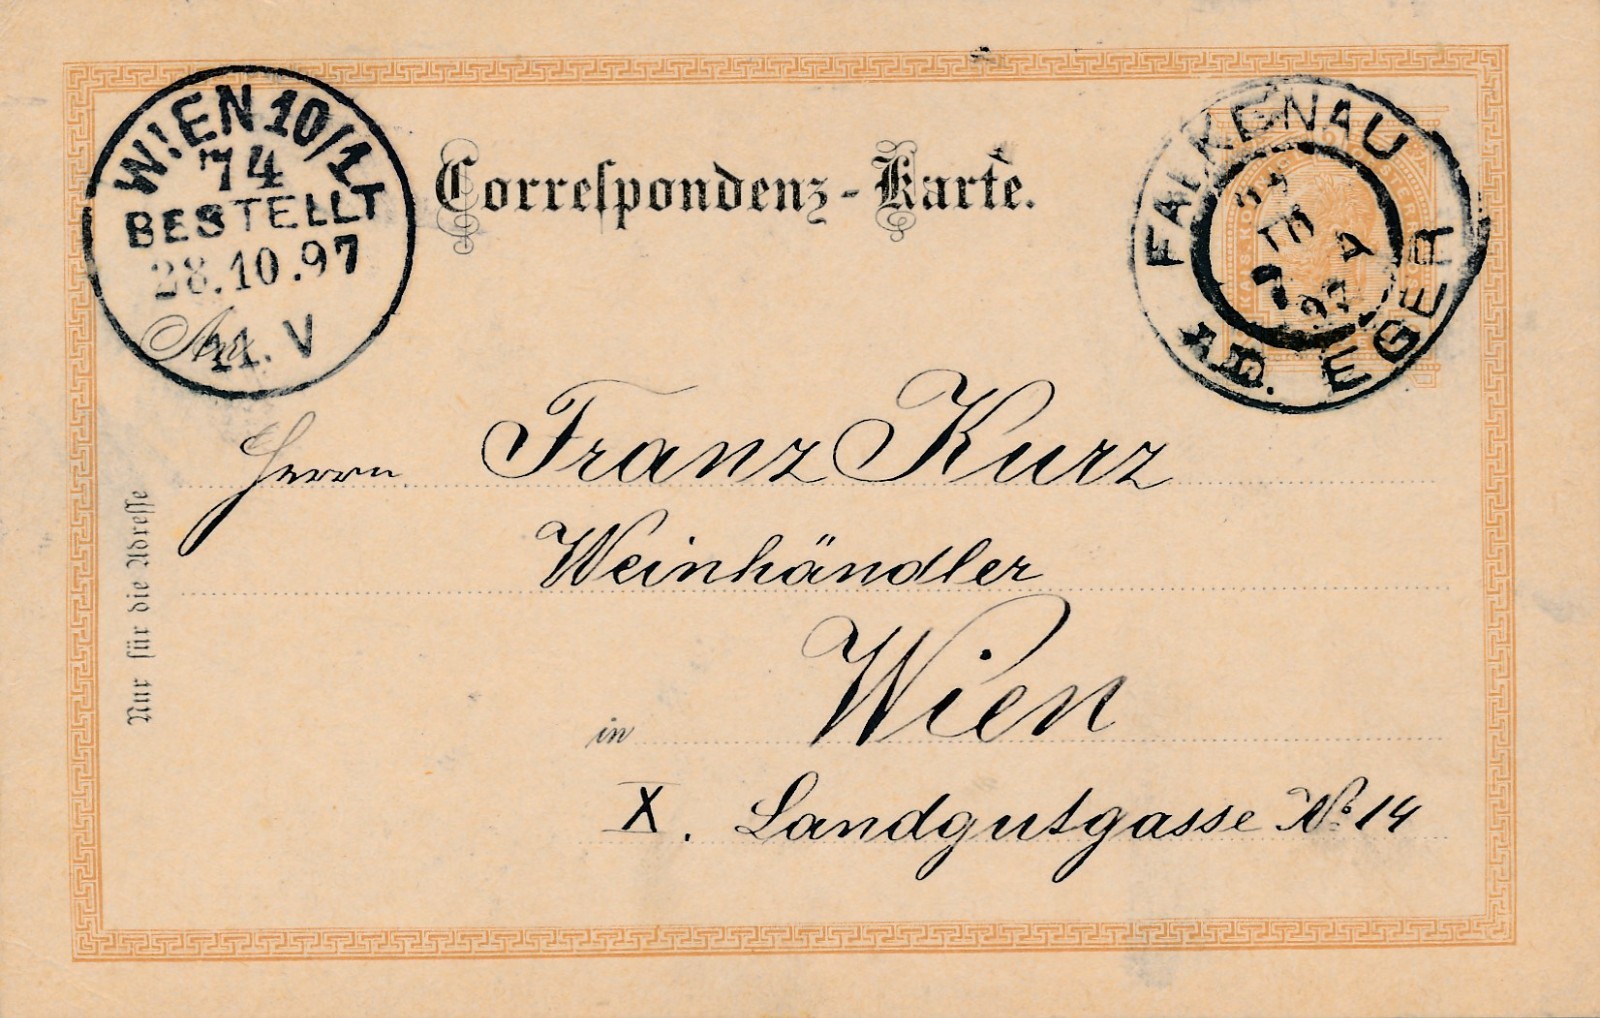 WIEN 10/1
74
BESTELLT
28.10.97
11. V
Correſpondenz-Karte.
FALKENAU
A.D. EGER
An
Herrn Franz Kurz
Weinhändler
in Wien
X. Landgutgasse No 14
Nur für die Adreſſe